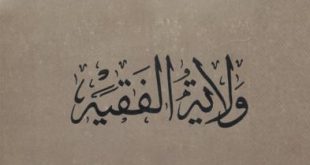 وَلَايَةُ الفَقِيْهِ